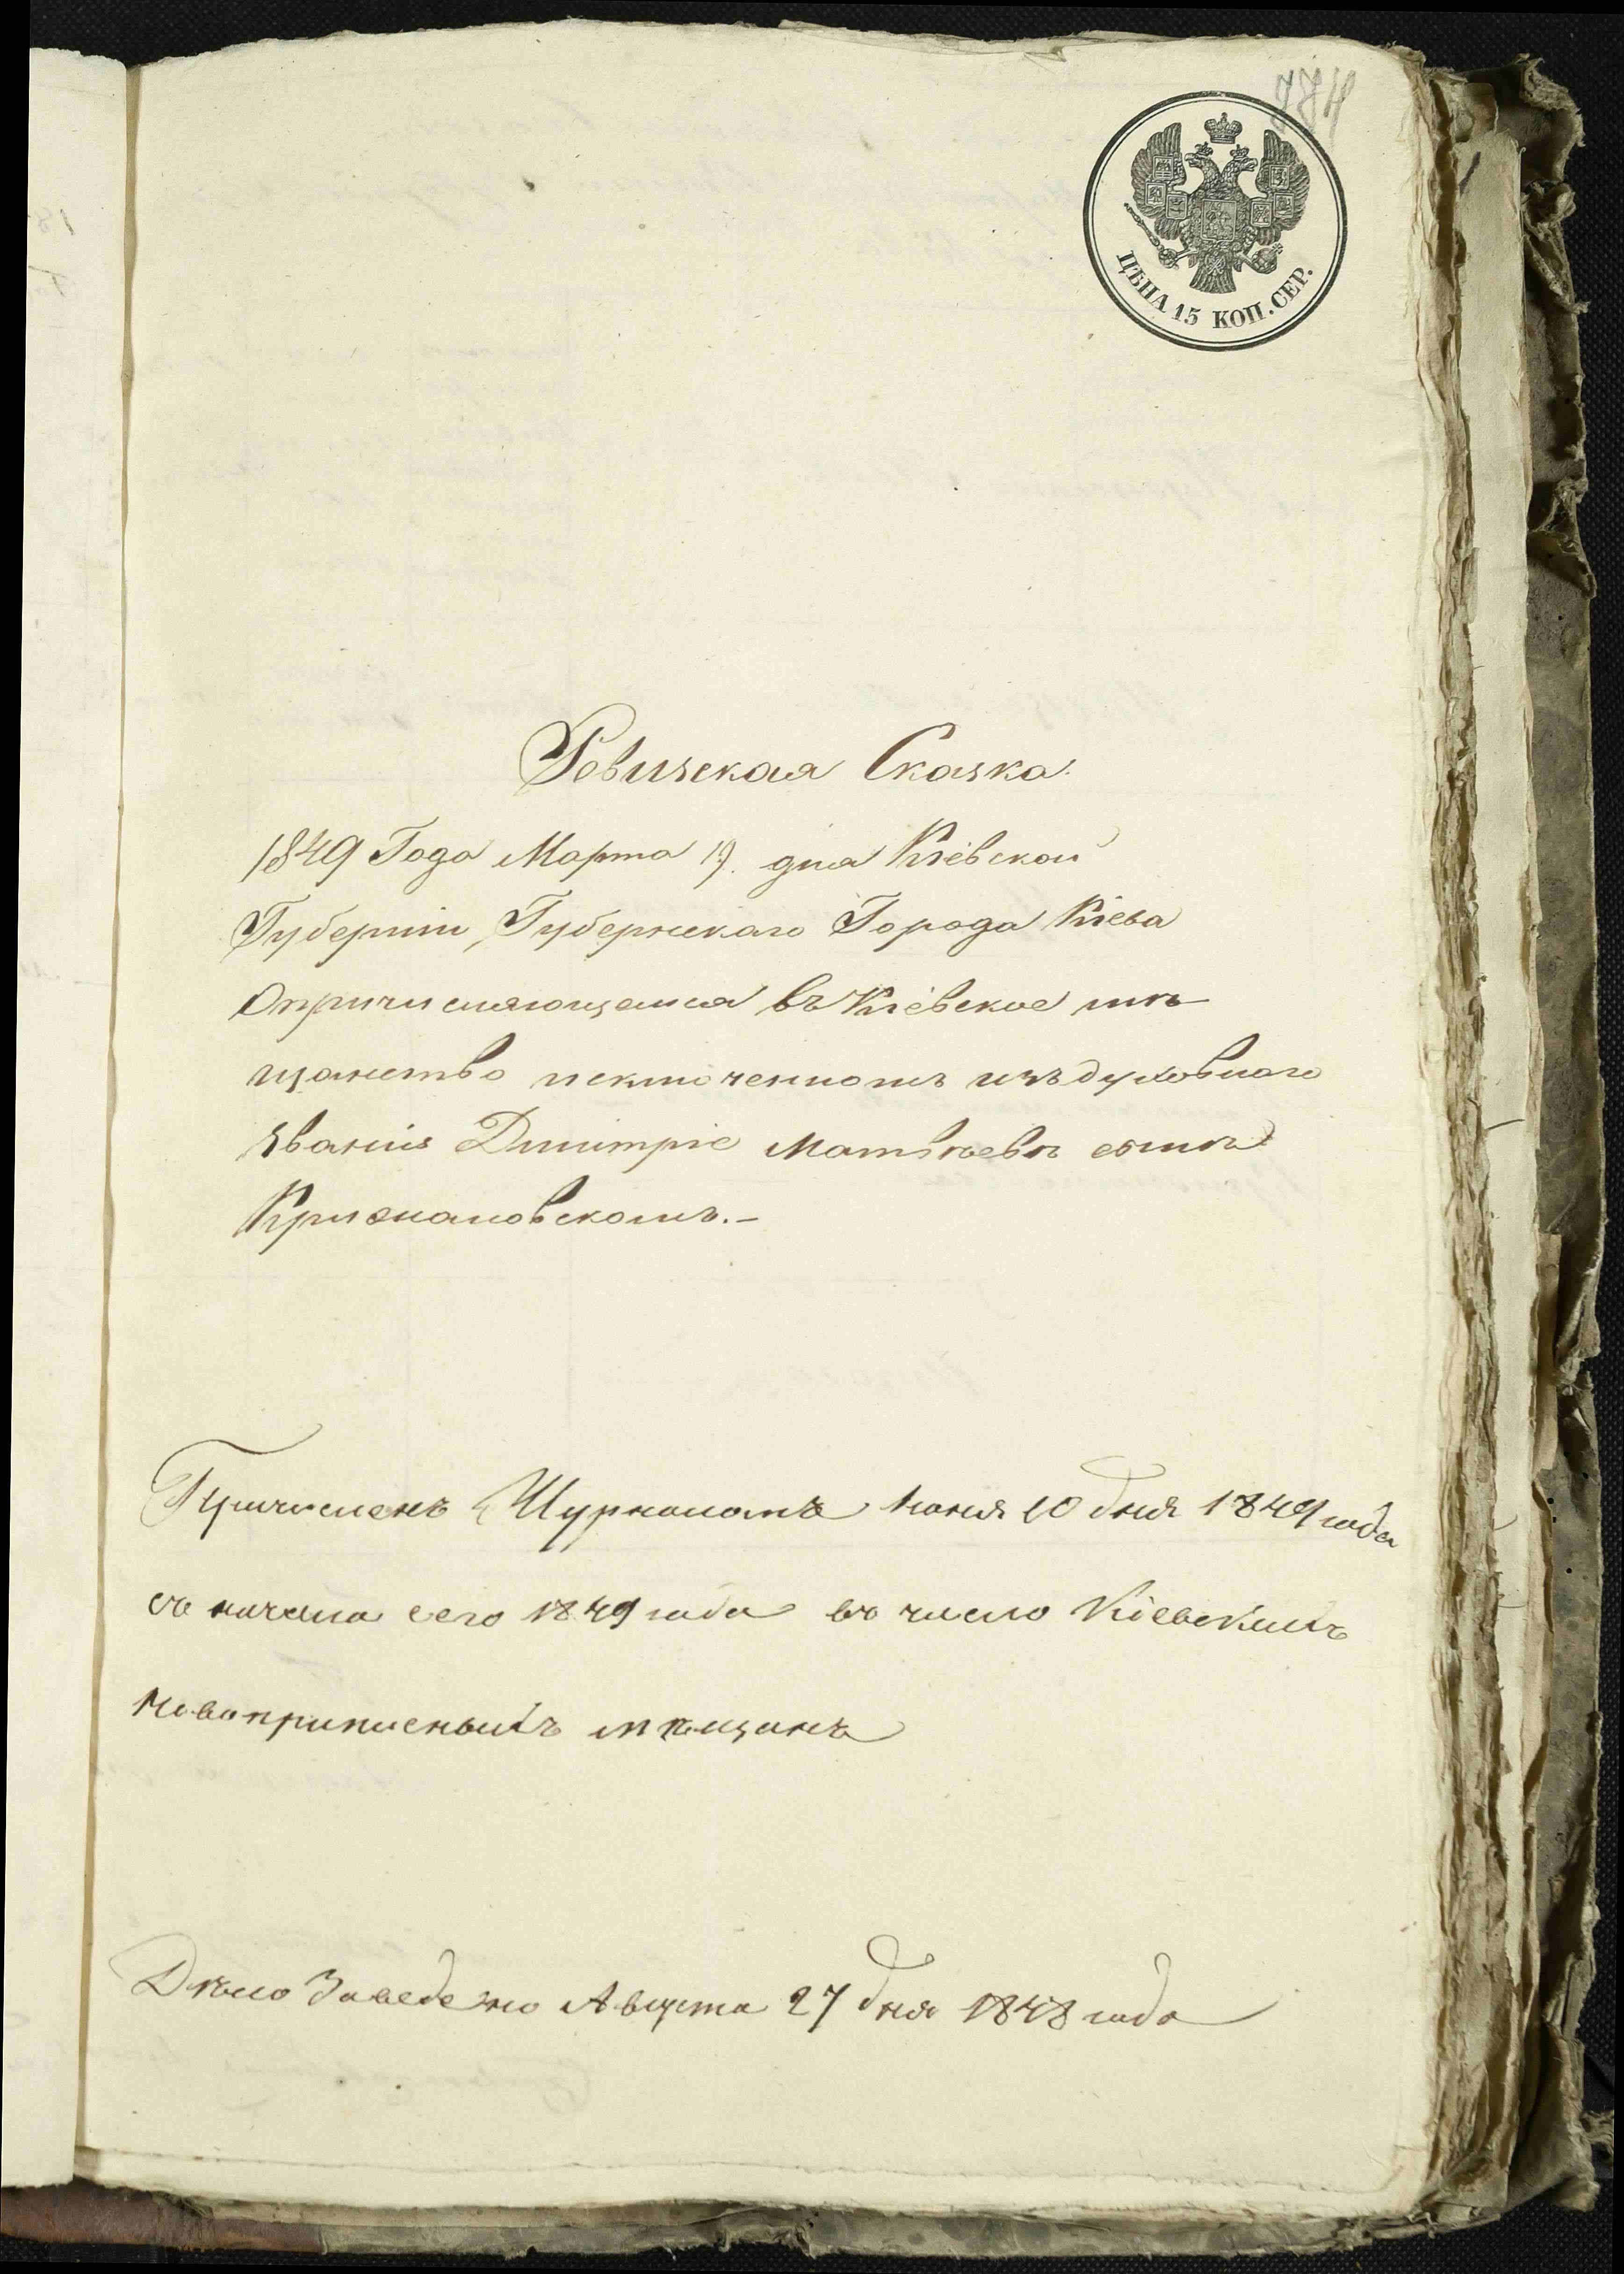 ЦѢНА 15 КОП. СЕР.
Ревизская Сказка.
1849 Года Марта 19. дня Кіевской
Губерніи, Губернскаго Города Кіева
О причисляющемся въ Кіевское мѣ-
щанство исключенномъ изъ духовнаго
званія Дмитріе Матвѣевѣ сынѣ
Крижановскомъ.-
Причисленъ Журналомъ Іюня 10 дня 1849 года
съ начала сего 1849 года въ число Кіевскихъ
Новоприписныхъ мѣщанъ
Дѣло Заведено Августа 27 дня 1848 года